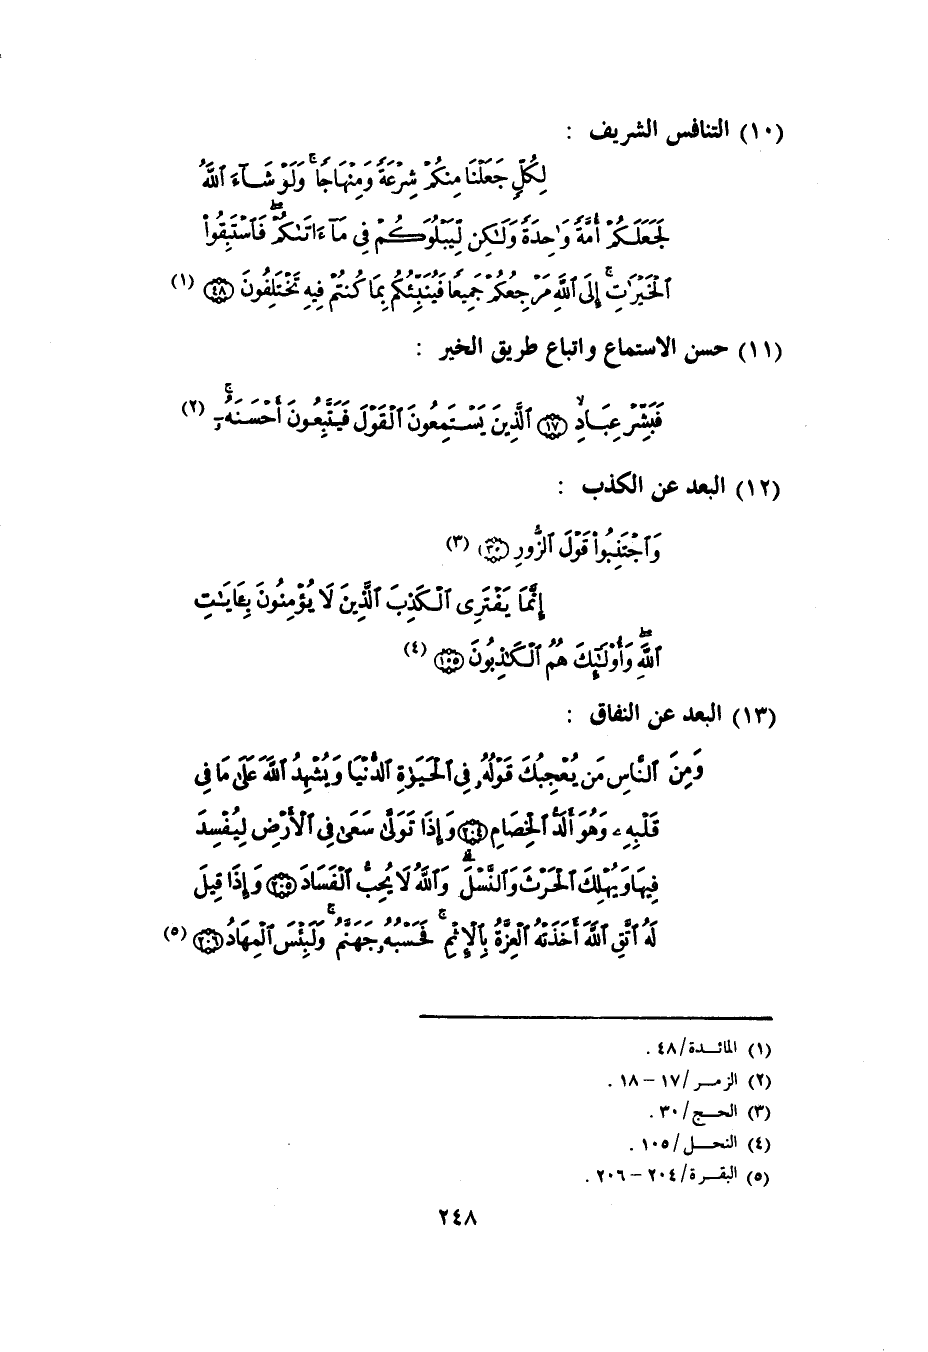 (١٠) التنافس الشريف :
لِكُلٍّ جَعَلْنَا مِنكُمْ شِرْعَةً وَمِنْهَاجًا ۚ وَلَوْ شَآءَ ٱللَّهُ
لَجَعَلَكُمْ أُمَّةً وَٰحِدَةً وَلَٰكِن لِّيَبْلُوَكُمْ فِى مَآ ءَاتَىٰكُمْ ۖ فَٱسْتَبِقُوا۟
ٱلْخَيْرَٰتِ ۚ إِلَى ٱللَّهِ مَرْجِعُكُمْ جَمِيعًا فَيُنَبِّئُكُم بِمَا كُنتُمْ فِيهِ تَخْتَلِفُونَ ﴿٤٨﴾ (١)
(١١) حسن الاستماع واتباع طريق الخير :
فَبَشِّرْ عِبَادِ ۙ ﴿١٧﴾ ٱلَّذِينَ يَسْتَمِعُونَ ٱلْقَوْلَ فَيَتَّبِعُونَ أَحْسَنَهُۥٓ ۚ (٢)
(١٢) البعد عن الكذب :
وَٱجْتَنِبُوا۟ قَوْلَ ٱلزُّورِ ﴿٣٠﴾ (٣)
إِنَّمَا يَفْتَرِى ٱلْكَذِبَ ٱلَّذِينَ لَا يُؤْمِنُونَ بِـَٔايَٰتِ
ٱللَّهِ ۖ وَأُو۟لَٰٓئِكَ هُمُ ٱلْكَٰذِبُونَ ﴿١٠٥﴾ (٤)
(١٣) البعد عن النفاق :
وَمِنَ ٱلنَّاسِ مَن يُعْجِبُكَ قَوْلُهُۥ فِى ٱلْحَيَوٰةِ ٱلدُّنْيَا وَيُشْهِدُ ٱللَّهَ عَلَىٰ مَا فِى
قَلْبِهِۦ وَهُوَ أَلَدُّ ٱلْخِصَامِ ﴿٢٠٤﴾ وَإِذَا تَوَلَّىٰ سَعَىٰ فِى ٱلْأَرْضِ لِيُفْسِدَ
فِيهَا وَيُهْلِكَ ٱلْحَرْثَ وَٱلنَّسْلَ ۗ وَٱللَّهُ لَا يُحِبُّ ٱلْفَسَادَ ﴿٢٠٥﴾ وَإِذَا قِيلَ
لَهُ ٱتَّقِ ٱللَّهَ أَخَذَتْهُ ٱلْعِزَّةُ بِٱلْإِثْمِ ۚ فَحَسْبُهُۥ جَهَنَّمُ ۚ وَلَبِئْسَ ٱلْمِهَادُ ﴿٢٠٦﴾ (٥)
(١) المائدة/٤٨ .
(٢) الزمر/١٧ – ١٨ .
(٣) الحج/٣٠ .
(٤) النحل/١٠٥ .
(٥) البقرة/٢٠٤ – ٢٠٦ .
٢٤٨